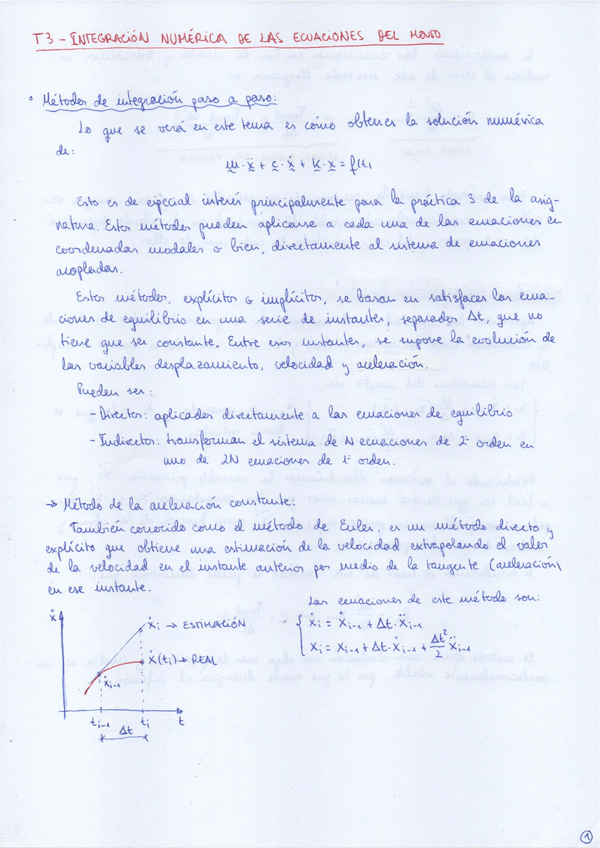 T3 - INTEGRACIÓN NUMÉRICA DE LAS ECUACIONES DEL MOVTO
° Métodos de integración paso a paso:
Lo que se verá en este tema es cómo obtener la solución numérica
de:
m·ẍ + c·ẋ + k·x = f(t)
Esto es de especial interés principalmente para la práctica 3 de la asig-
natura. Estos métodos pueden aplicarse a cada una de las ecuaciones en
coordenadas modales o bien, directamente al sistema de ecuaciones
acopladas.
Estos métodos, explícitos o implícitos, se basan en satisfacer las ecua-
ciones de equilibrio en una serie de instantes, separados Δt, que no
tiene que ser constante. Entre esos instantes, se supone la evolución de
las variables desplazamiento, velocidad y aceleración.
Pueden ser:
- Directos: aplicados directamente a las ecuaciones de equilibrio
- Indirectos: transforman el sistema de N ecuaciones de 2º orden en
uno de 2N ecuaciones de 1er orden.
→ Método de la aceleración constante:
También conocido como el método de Euler, es un método directo y
explícito que obtiene una estimación de la velocidad extrapolando el valor
de la velocidad en el instante anterior por medio de la tangente (aceleración)
en ese instante.
Las ecuaciones de este método son:
ẋi = ẋi-1 + Δt·ẍi-1
xi = xi-1 + Δt·ẋi-1 + Δt²/2 ẍi-1
ẋ
ẋi → ESTIMACIÓN
ẋ(ti) → REAL
ẋi-1
ti-1 ti t
Δt
1